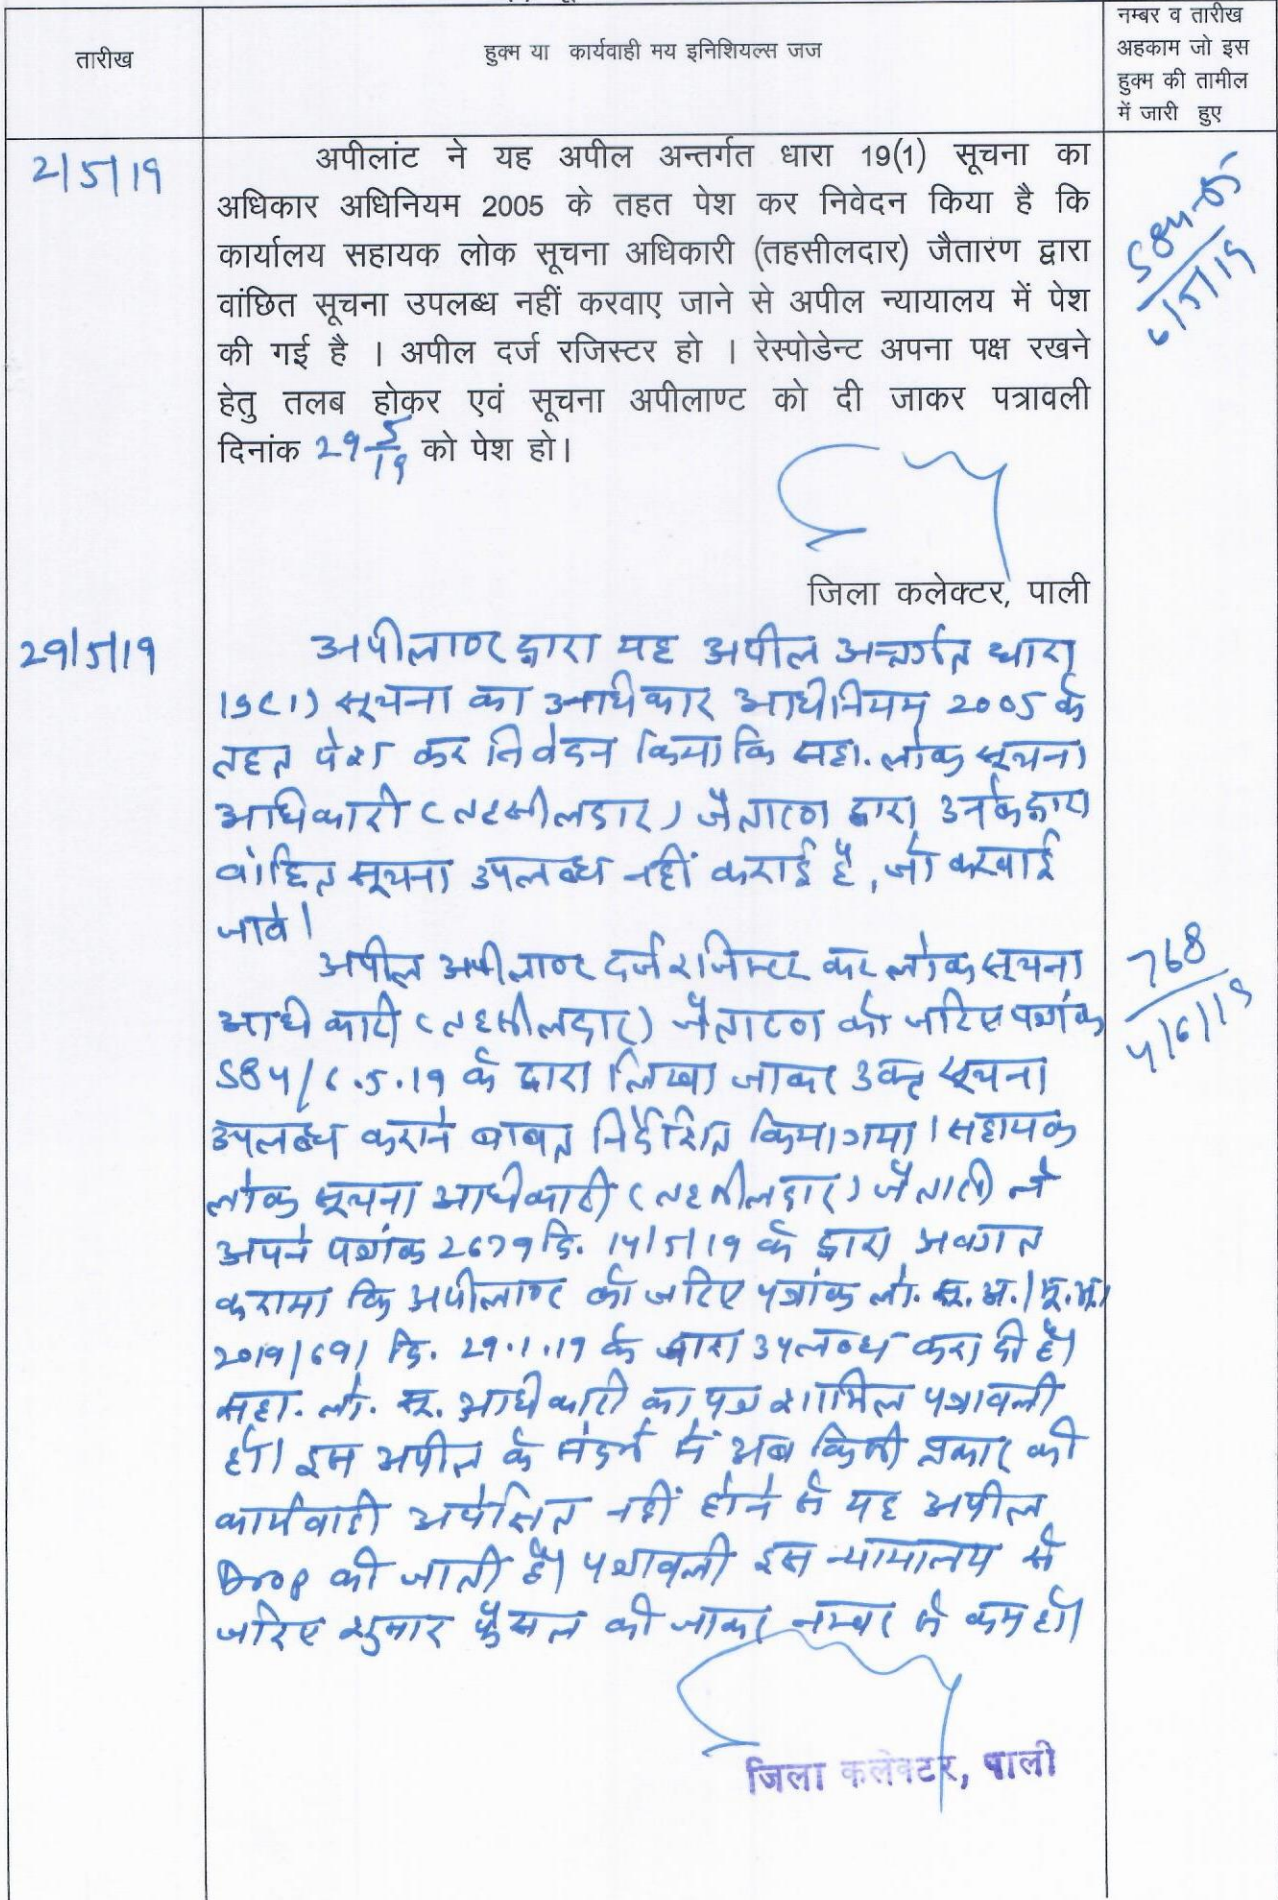 तारीख
हुक्म या कार्यवाही मय इनिशियल्स जज
नम्बर व तारीख
अहकाम जो इस
हुक्म की तामील
में जारी हुए
2/5/19
अपीलांट ने यह अपील अन्तर्गत धारा 19(1) सूचना का
अधिकार अधिनियम 2005 के तहत पेश कर निवेदन किया है कि
कार्यालय सहायक लोक सूचना अधिकारी (तहसीलदार) जैतारण द्वारा
वांछित सूचना उपलब्ध नहीं करवाए जाने से अपील न्यायालय में पेश
की गई है । अपील दर्ज रजिस्टर हो । रेस्पोडेन्ट अपना पक्ष रखने
हेतु तलब होकर एवं सूचना अपीलाण्ट को दी जाकर पत्रावली
दिनांक 29 5/19 को पेश हो।
584-85
6/5/19
जिला कलेक्टर, पाली
29/5/19
अपीलाण्ट द्वारा यह अपील अन्तर्गत धारा
19(1) सूचना का अधिकार अधिनियम 2005 के
तहत पेश कर निवेदन किया कि सहा. लोक सूचना
अधिकारी (तहसीलदार) जैतारण द्वारा उनके द्वारा
वांछित सूचना उपलब्ध नहीं कराई है, जो करवाई
जावे।
अपील अपीलाण्ट दर्ज रजिस्टर कर लोक सूचना
अधिकारी (तहसीलदार) जैतारण को जरिए पत्रांक
584/6.5.19 के द्वारा लिखा जाकर उक्त सूचना
उपलब्ध कराने बाबत निर्देशित किया गया। सहायक
लोक सूचना अधिकारी (तहसीलदार) ने
अपने पत्रांक 2679 दि. 14/5/19 के द्वारा अवगत
कराया कि अपीलाण्ट को जरिए पत्रांक लो. सू. अ./
2019/691 दि. 29.1.19 के द्वारा उपलब्ध करा दी है।
सहा. लो. सू. अधिकारी का पत्र शामिल पत्रावली
हो। इस अपील के संदर्भ में अब किसी प्रकार की
कार्यवाही अपेक्षित नहीं होने से यह अपील
Drop की जाती है। पत्रावली इस न्यायालय से
जरिए शुमार फैसल की जाकर नम्बर से कम हो।
768
4/6/19
जिला कलेक्टर, पाली